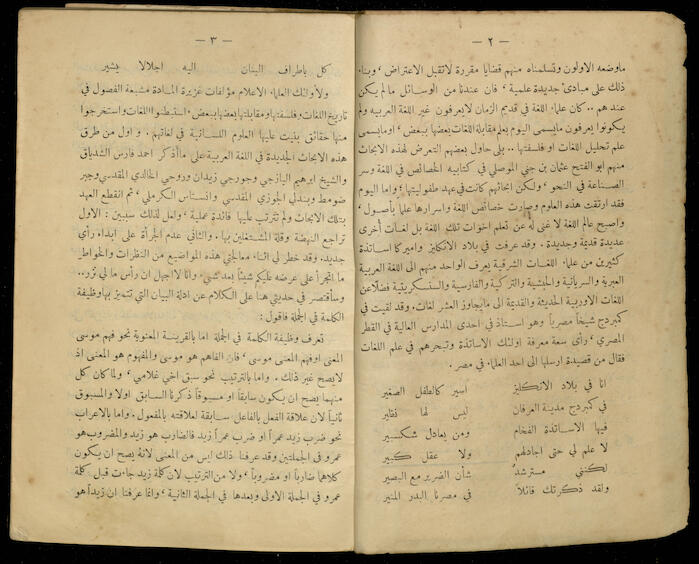 — ٢ —
ماوضعه الاولون وتسلمناه منهم قضايا مقررة لاتقبل الاعتراض ، وبناء
ذلك على مبادئ جديدة علمية ، فان عندنا من الوسائل مالم يكن
عندهم .. كان علماء اللغة في قديم الزمان لايعرفون غير اللغة العربيه ولم
يكونوا يعرفون مايسمى اليوم بعلم مقابلة اللغات بعضها ببعض ، اومايسمى
علم تحليل اللغات او فلسفتها .. بلى حاول بعضهم التعرض لهذه الابحاث
منهم ابو الفتح عثمان بن جني الموصلي في كتابيه الخصائص في اللغة وسر
الصناعة في النحو ، ولكن ابحاثهم كانت في عهد طفوليتها ، واما اليوم
فقد ارتقت هذه العلوم وصارت خصائص اللغة واسرارها علما بأصول ،
واصبح عالم اللغة لا غنى له عن تعلم اخوات تلك اللغة بل لغات أخرى
عديدة قديمة وجديدة . وقد عرفت في بلاد الانكليز واميركا اساتذة
كثيرين من علماء اللغات الشرقية يعرف الواحد منهم الى اللغة العربية
العبرية والسريانية والحبشية والتركية والفارسية والسنسكريتية فضلاً عن
اللغات الاوربية الحديثة والقديمة الى مايجاوز العشر لغات. وقد لقيت في
كمبردج شيخاً مصرياً وهو استاذ في احدى المدارس العالية في القطر
المصري ، رأى سعة معرفة اولئك الاساتذة وتبحرهم في علم اللغات
فقال من قصيدة ارسلها الى احد العلماء في مصر .
انا في بلاد الانكليز اسير كالطفل الصغير
في كمبردج مدينة العرفان ليس لها نظير
فيها الاساتذة الفخام ومن يعادل شكسبير
لا علم لي حتى اجادلهم ولا عقل كبير
لكنني مسترشدٌ شأن الضرير مع البصير
ولقد ذكرتك قائلاً في مصرنا البدر المنير
— ٣ —
كل باطراف البنان اليه اجلالا يشير
ولأولئك العلماء الاعلام مؤلفات غزيرة المادة مشبعة الفصول في
تاريخ اللغات وفلسفتها ومقابلتها بعضها ببعض . استبطنوا اللغات واستخرجوا
منها حقائق بنيت عليها العلوم اللسانية في لغاتهم . و اول من طرق
هذه الابحاث الجديدة في اللغة العربية على ما أذكر احمد فارس الشدياق
والشيخ ابرهيم اليازجي وجورجي زيدان وروحي الخالدي المقدسي وجبر
ضومط وبندلي الجوزي المقدسي وانستاس الكرملي ، ثم انقطع العهد
بتلك الابحاث ولم تترتب عليها فائدة عملية ، ولعل لذلك سببين : الاول
تراجع النهضة وقلة المشتغلين بها . والثاني عدم الجرأة على ابداء رأي
جديد. وقد خطر لي اثناء معالجتي هذه المواضيع من النظرات والخواطر
ما اتجرأ على عرضه عليكم شيئاً بعد شيء . وانا لا اجهل ان رأس ما لي نزر ..
وسأقتصر في حديثي هنا على الكلام عن ادلة البيان التي تتميز بهاوظيفة
الكلمة في الجملة فاقول :
تعرف وظيفة الكلمة في الجملة اما بالقرينة المعنوية نحو فهم موسى
المعنى اوفهم المعنى موسى ، فان الفاهم هو موسى والمفهوم هو المعنى اذ
لايصح غير ذلك . واما بالترتيب نحو سبق اخي غلامي ، ولما كان كل
منهما يصح ان يكون سابقاً او مسبوقاً ذكرنا السابق اولا والمسبوق
ثانياً لان علاقة الفعل بالفاعل سابقة لعلاقته بالمفعول . واما بالاعراب
نحو ضرب زيد عمراً او ضرب عمراً زيد فالضارب هو زيد والمضروب هو
عمرو في الجملتين وقد عرفنا ذلك ليس من المعنى لانه يصح ان يكون
كلاهما ضارباً او مضروباً ، ولا من الترتيب لان كلمة زيد جاءت قبل كلمة
عمرو في الجملة الاولى وبعدها في الجملة الثانية ، وانما عرفنا ان زيداً هو